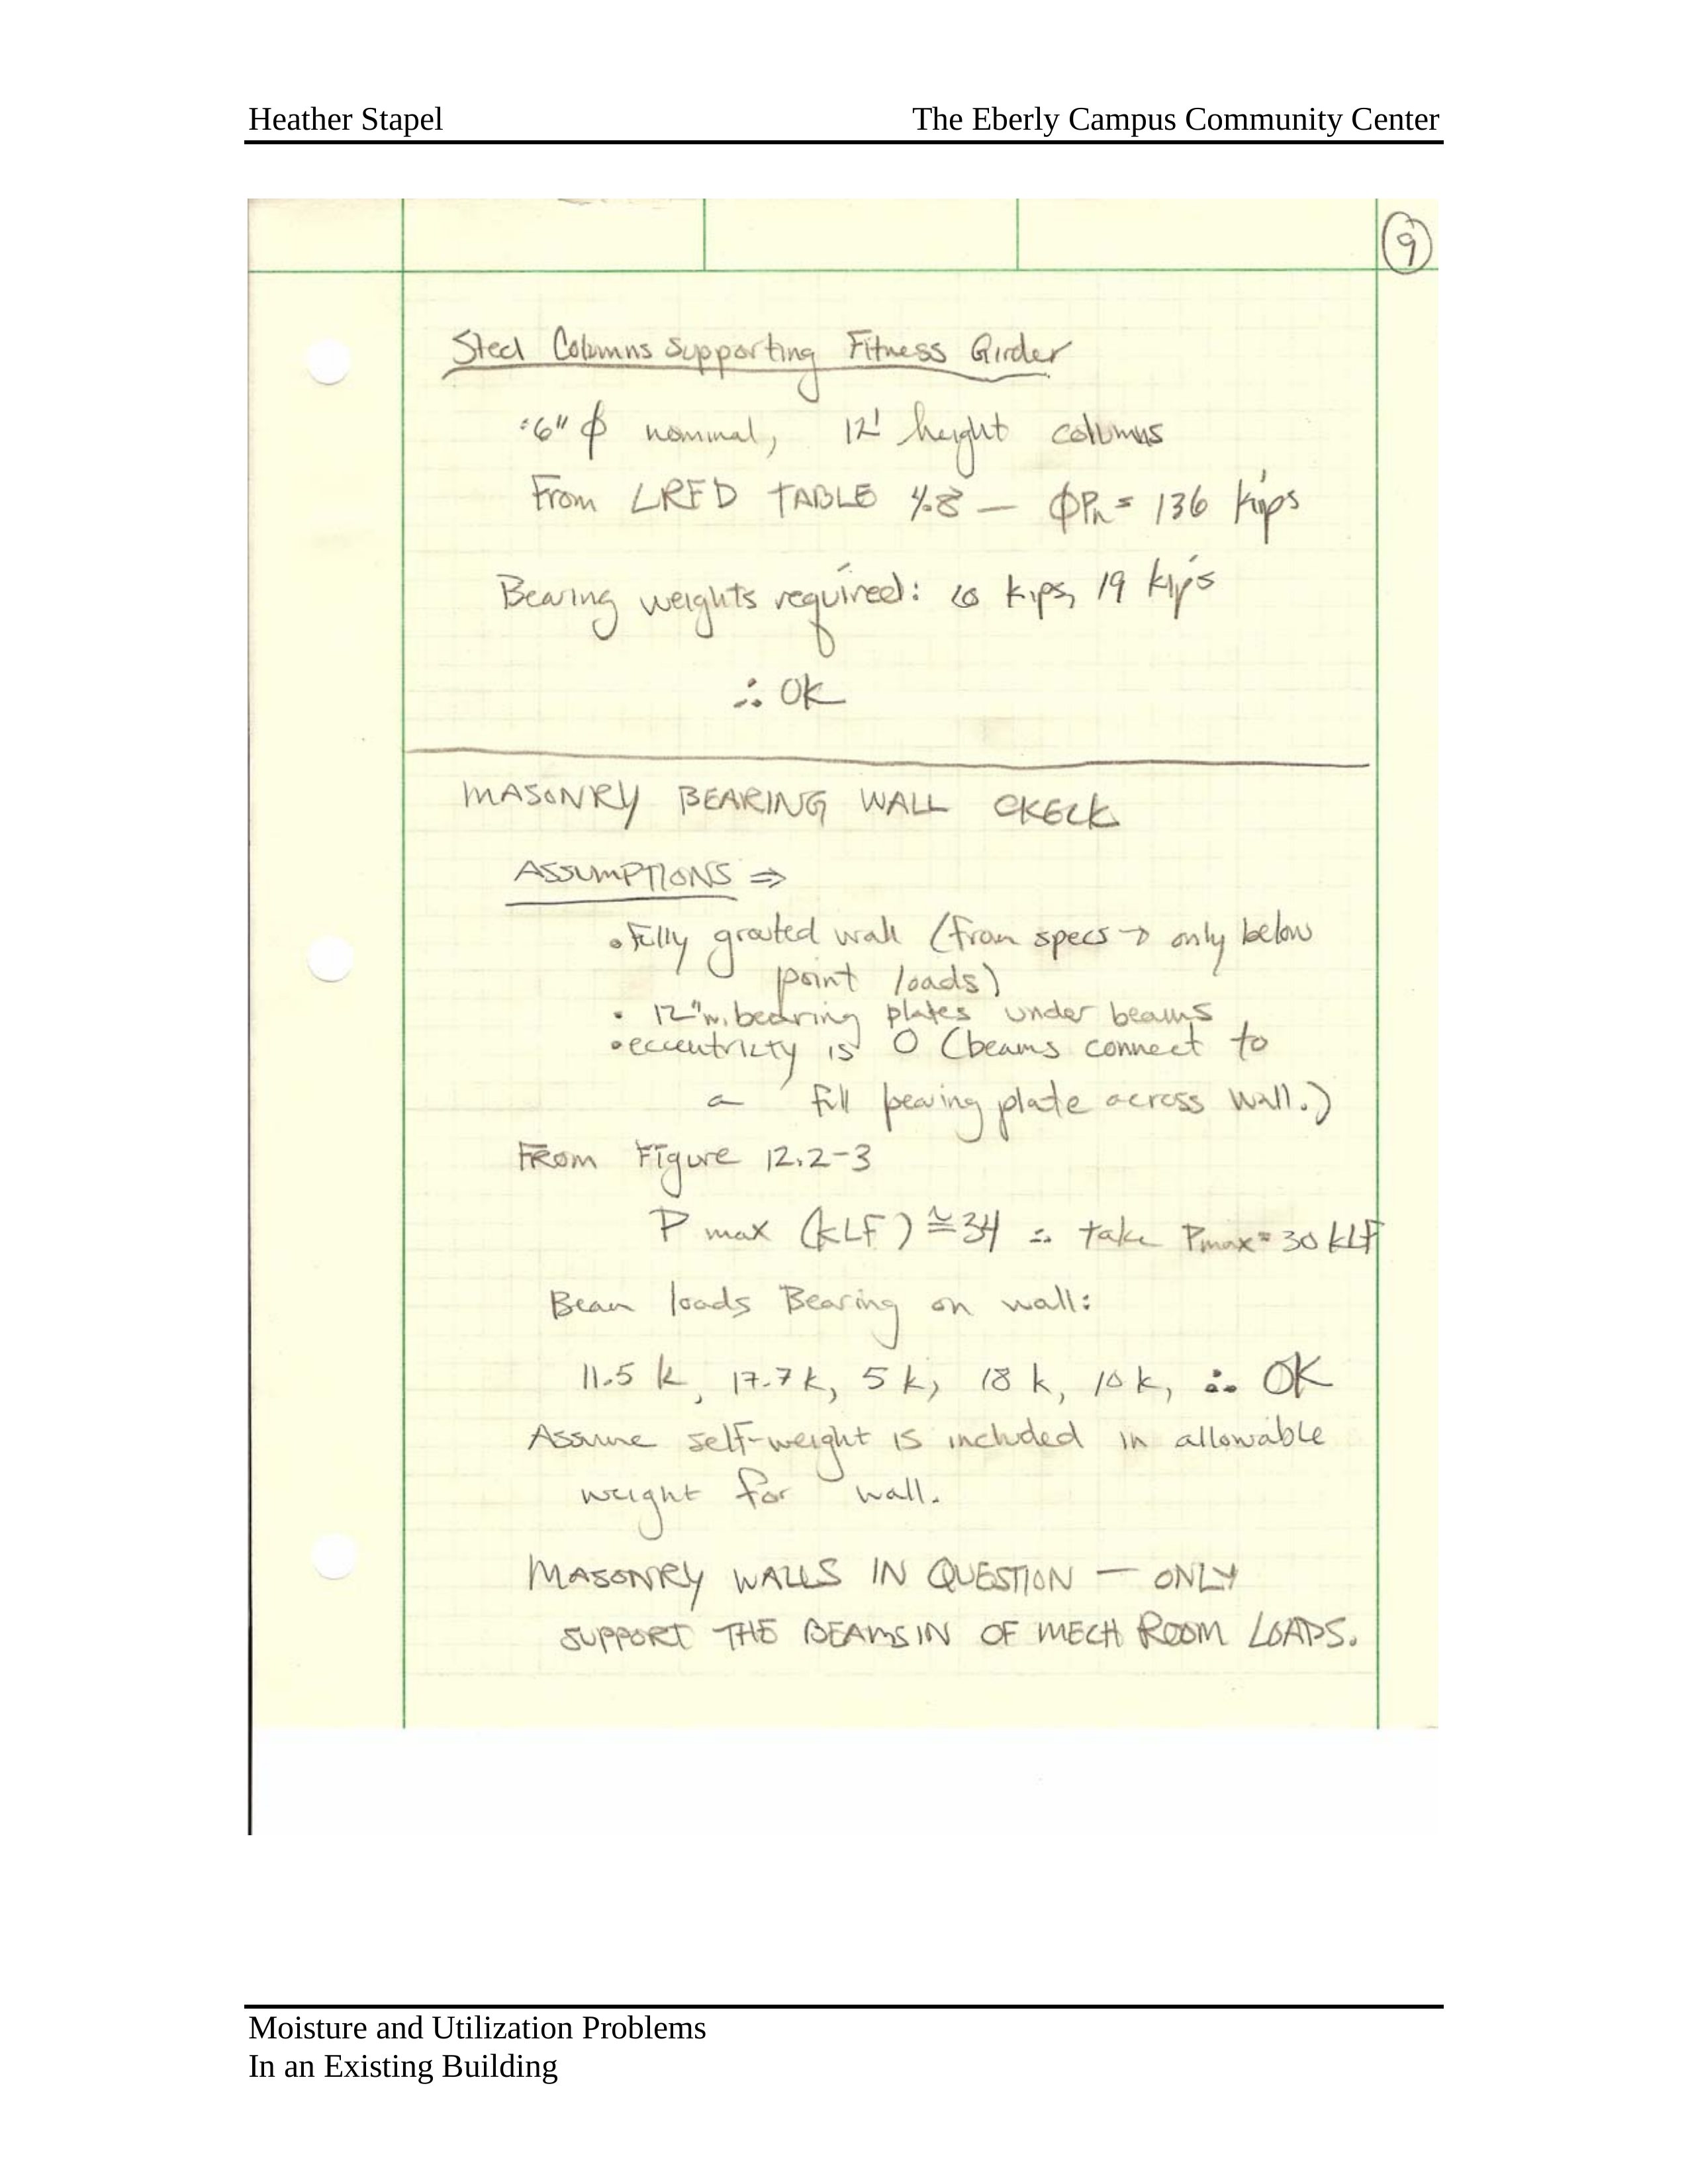 Heather Stapel
The Eberly Campus Community Center
9
Steel Columns Supporting Fitness Girder
6" φ nominal, 12' height columns
From LRFD TABLE 4.8 — φPn = 136 kips
Bearing weights required: 10 kips, 19 kips
∴ OK
MASONRY BEARING WALL CKECK
ASSUMPTIONS ⇒
• Fully grouted wall (from specs → only below
point loads)
• 12" bearing plates under beams
• eccentricty is 0 (beams connect to
a full bearing plate across wall.)
From Figure 12.2-3
P max (KLF) ≅ 34 ∴ take Pmax = 30 kLF
Beam loads Bearing on wall:
11.5 k, 17.7 k, 5 k, 18 k, 10 k, ∴ OK
Assume self-weight is included in allowable
weight for wall.
MASONRY WALLS IN QUESTION — ONLY
SUPPORT THE BEAMS IN OF MECH ROOM LOADS.
Moisture and Utilization Problems
In an Existing Building